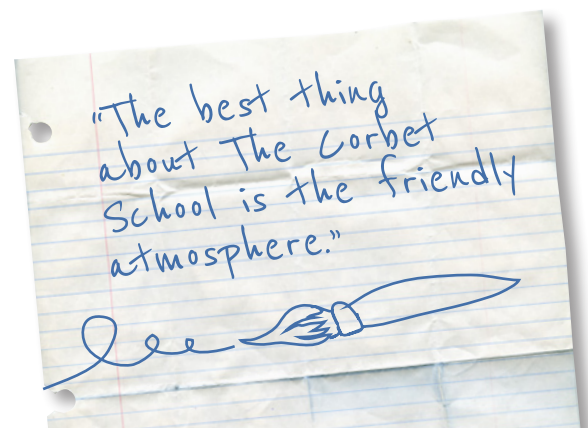 "The best thing
about The Corbet
School is the friendly
atmosphere."